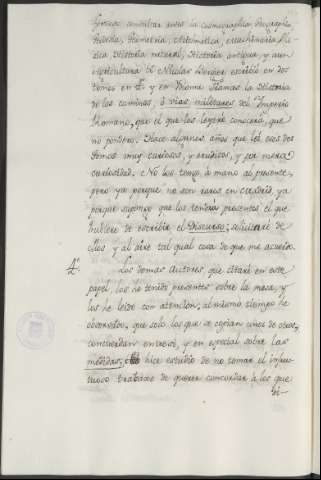 Griega, consultar antes la Cosmographia, Geographia,
Botanica, Geometria, Arithmetica, Architectura, Fi-
sica, Historia natural, Historia antigua, y aun
Agricultura &c. Nicolas Bergier escribió en dos
tomos en 4º y en Idioma Frances la Historia
de los caminos, ò vias militares del Imperio
Romano, que el que los leyere conocerá, que
no pondero. Hace algunos años que leì esos dos
tomos muy curiosos, y eruditos, y por mera
curiosidad. No los tengo à mano al presente,
pero ya porque no son raros en Madrid, ya
porque supongo que los tendra presentes el que
hubiere de escribir el Discurso; solicitaré de
ellos y al dire tal qual cosa de que me acuerdo.
4. Los demas Autores, que citaré en este
papel los he tenido presentes sobre la mesa, y
los he leido con atencion; al mismo tiempo he
observado, que solo los que se copian unos de otros,
concuerdan entre sì, y en especial sobre las
medidas; hice estudio de no tomar el infruc-
tuoso trabajo de querer concordar à los que